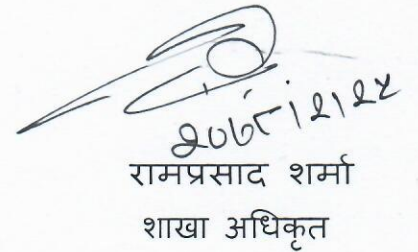 २०७८।२।२५
रामप्रसाद शर्मा
शाखा अधिकृत